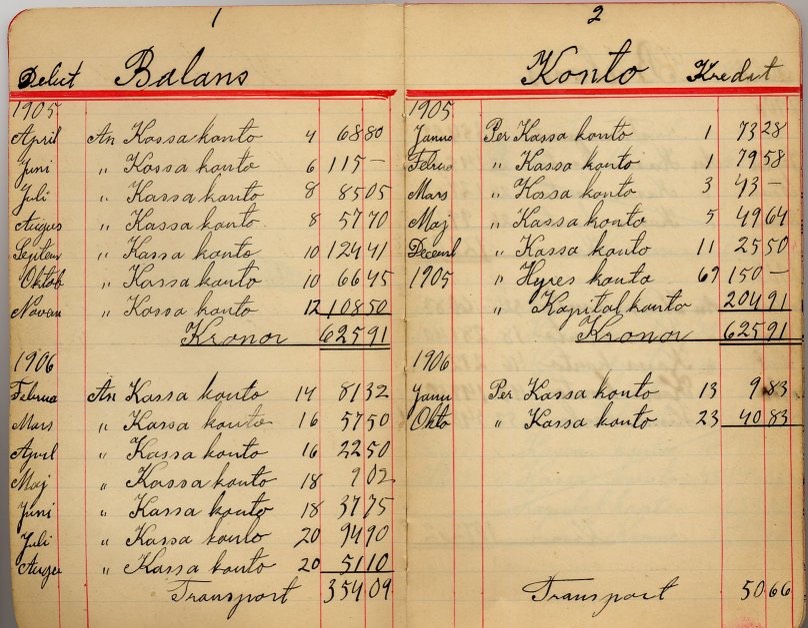 1
Debet Balans
1905
April An Kassa konto 4 68 80
Juni " Kassa konto 6 115 –
Juli " Kassa konto 8 85 05
Augus " Kassa konto 8 57 70
Septem " Kassa konto 10 124 41
Oktob " Kassa konto 10 66 45
Novem " Kassa konto 12 108 50
Kronor 625 91
1906
Februa An Kassa konto 14 81 32
Mars " Kassa konto 16 57 50
April " Kassa konto 16 22 50
Maj " Kassa konto 18 9 02
Juni " Kassa konto 18 37 75
Juli " Kassa konto 20 94 90
Augu " Kassa konto 20 51 10
Transport 354 09
2
Konto Kredit
1905
Janua Per Kassa konto 1 73 28
Februa " Kassa konto 1 79 58
Mars " Kassa konto 3 43 –
Maj " Kassa konto 5 49 64
Decemb " Kassa konto 11 25 50
1905 " Hyres konto 69 150 –
" Kapital konto 204 91
Kronor 625 91
1906
Janu Per Kassa konto 13 9 83
Okto " Kassa konto 23 40 83
Transport 50 66